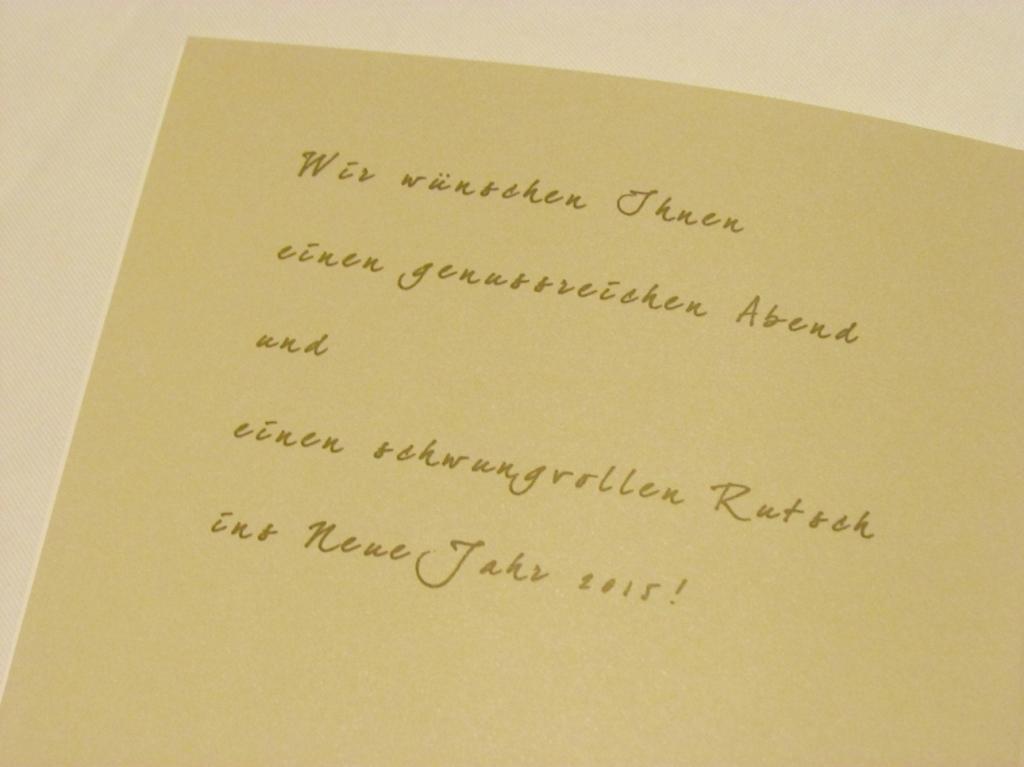 Wir wünschen Ihnen
einen genussreichen Abend
und
einen schwungvollen Rutsch
ins Neue Jahr 2015!